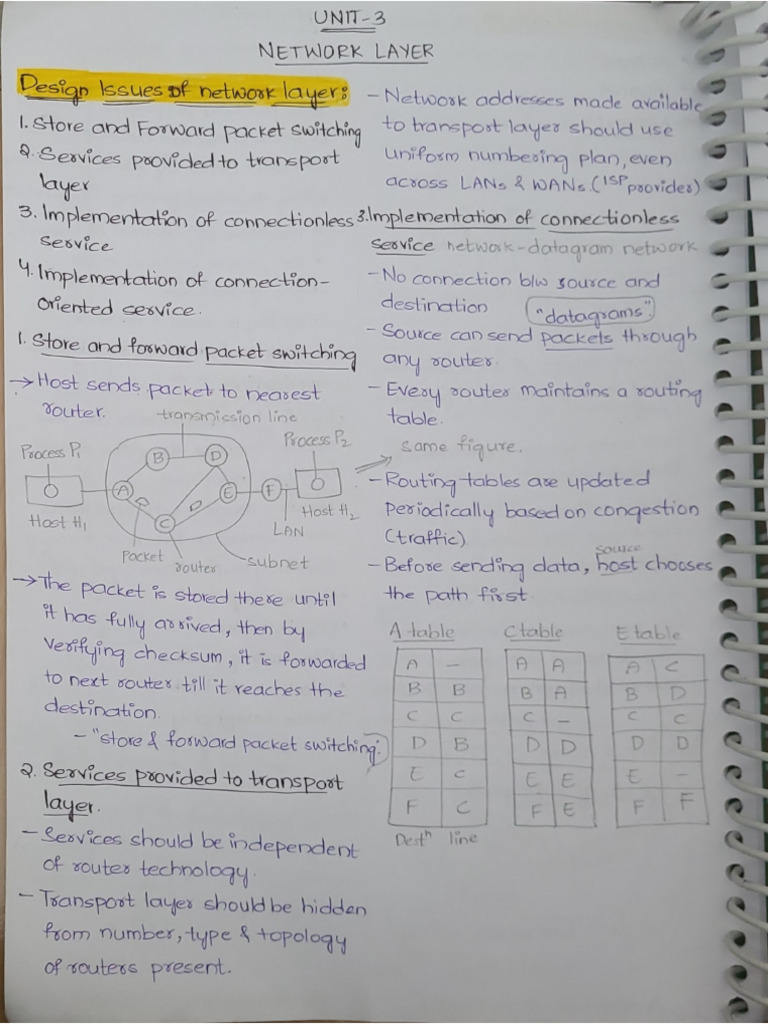 UNIT-3
NETWORK LAYER
Design Issues of network layer:
1. Store and Forward packet switching
2. Services provided to transport
layer
3. Implementation of connectionless
service
4. Implementation of connection-
oriented service.
1. Store and forward packet switching
→ Host sends packet to nearest
router.
transmission line
Process P1
Process P2
B
D
A
E
F
C
Host H1
Host H2
LAN
packet
router
subnet
→ The packet is stored there until
it has fully arrived, then by
verifying checksum, it is forwarded
to next router till it reaches the
destination.
- "store & forward packet switching."
2. Services provided to transport
layer.
- Services should be independent
of router technology.
- Transport layer should be hidden
from number, type & topology
of routers present.
- Network addresses made available
to transport layer should use
uniform numbering plan, even
across LANs & WANs. (ISP provider)
3. Implementation of connectionless
service network-datagram network
- No connection b/w source and
destination "datagrams"
- Source can send packets through
any router.
- Every router maintains a routing
table.
same figure.
- Routing tables are updated
periodically based on congestion
(traffic)
- Before sending data, source host chooses
the path first.
A table C table E table
A - A A A C
B B B A B D
C C C - C C
D B D D D D
E C E E E -
F C F E F F
Destn line